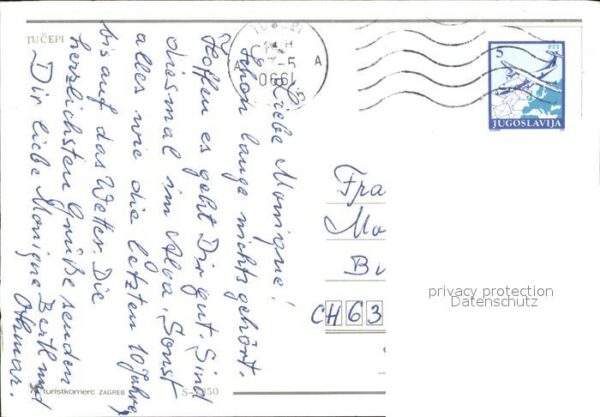 TUČEPI
Liebe Monique!
Schon lange nichts gehört.
Hoffen es geht Dir gut. Sind
diesmal im Alva, Sonst
alles wie die letzten 10 Jahre,
bis auf das Wetter. Die
herzlichsten Grüße senden
Dir liebe Monique Berti mit
Othmar.
1990
A A
5
PTT
JUGOSLAVIJA
Fra
Mo
Bu
CH 63
privacy protection
Datenschutz
turistkomerc ZAGREB